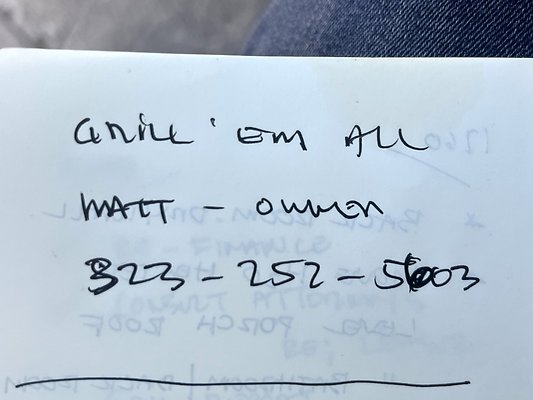 GRILL 'EM ALL
MATT - OWNER
323-252-5603